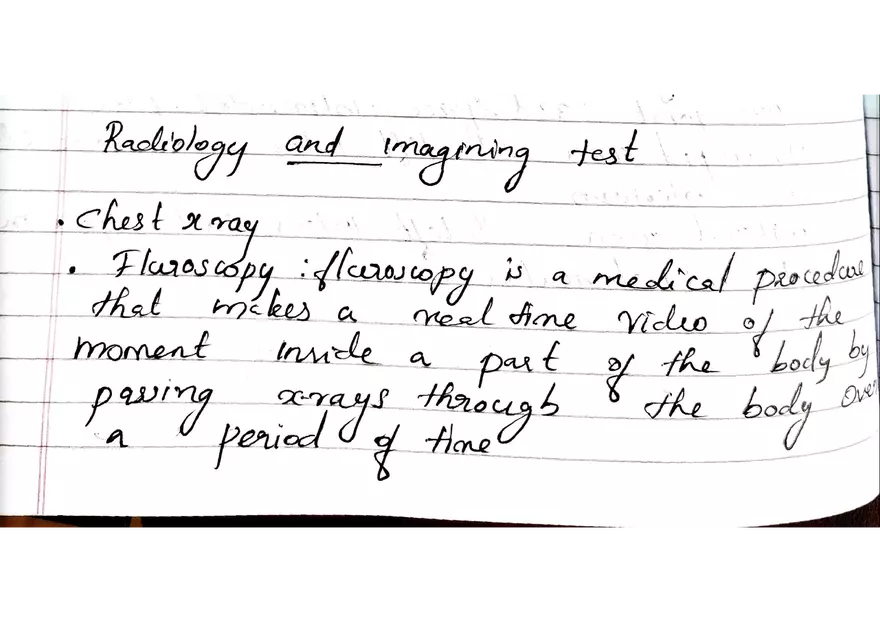 Radiology and imagining test
. Chest x ray
. Fluroscopy : fluroscopy is a medical procedure
that makes a real time video of the
moment inside a part of the body by
passing x-rays through the body over
a period of time